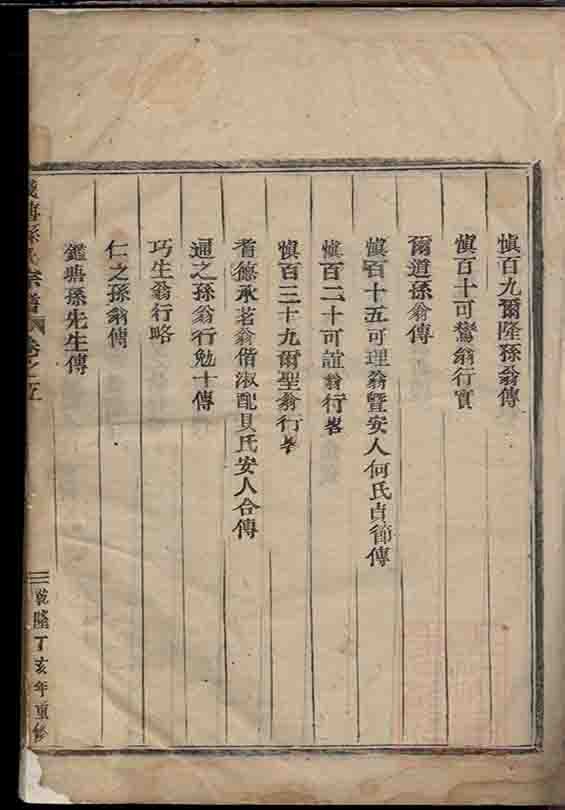 慎百九爾隆孫翁傳
慎百十可鸞翁行實
爾道孫翁傳
慎百十五可理翁暨安人何氏貞節傳
慎百二十可誼翁行畧
慎百三十九爾聖翁行畧
耆德承茗翁偕淑配貝氏安人合傳
通之孫翁行勉十傳
巧生翁行略
仁之孫翁傳
鑑塘孫先生傳
孫氏宗譜 卷之五
乾隆丁亥年重修